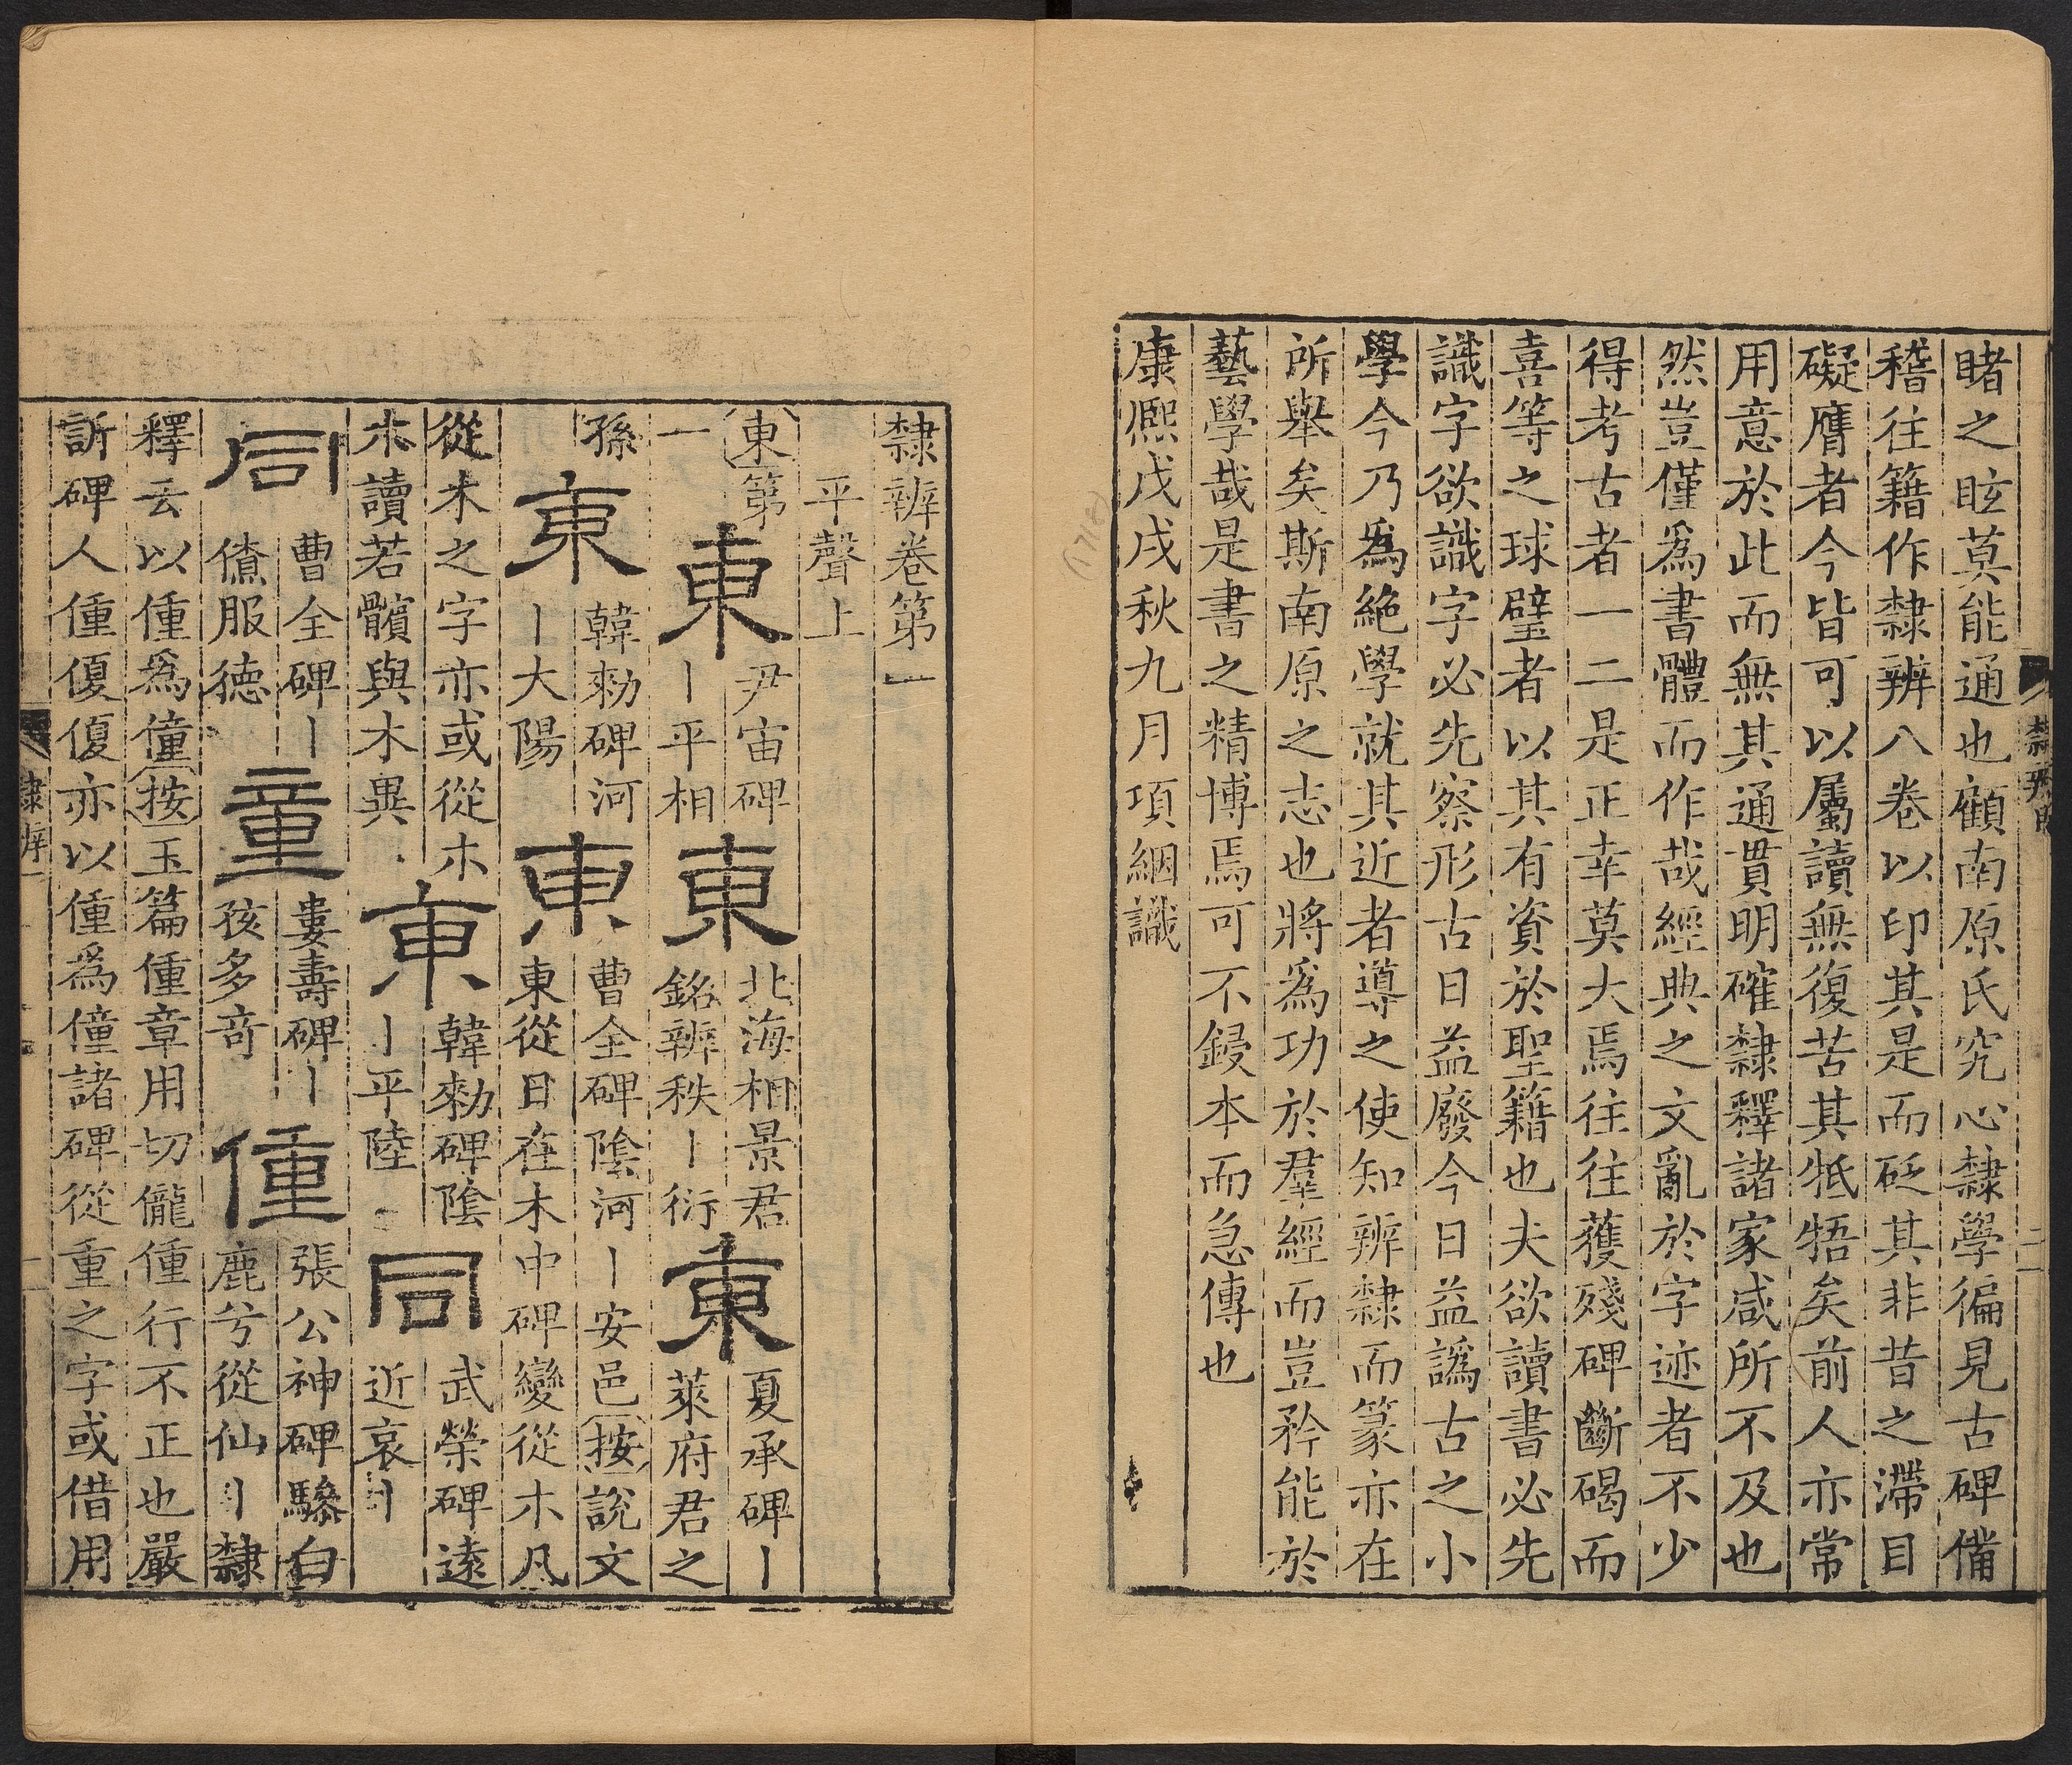 睹之眩莫能通也顧南原氏究心隸學徧見古碑備
稽往籍作隸辨八卷以印其是而砭其非昔之滯目
礙膺者今皆可以屬讀無復苦其牴牾矣前人亦常
用意於此而無其通貫明確隸釋諸家咸所不及也
然豈僅爲書體而作哉經典之文亂於字迹者不少
得考古者一二是正幸莫大焉往往獲殘碑斷碣而
喜等之球璧者以其有資於聖籍也夫欲讀書必先
識字欲識字必先察形古日益廢今日益譌古之小
學今乃爲絕學就其近者導之使知辨隸而篆亦在
所舉矣斯南原之志也將爲功於羣經而豈矜能於
藝學哉是書之精博焉可不鋟本而急傳也
康熙戊戌秋九月項絪識
(1718)
隸辨卷第一
平聲上
東第
一
東
尹宙碑
〡平相
東
北海相景君
銘辨秩〡衍
東
夏承碑〡
萊府君之
孫
東
韓勑碑河
〡大陽
東
曹全碑陰河〡安邑按說文
東從日在木中碑變從朩凡
從木之字亦或從朩
朩讀若髕與木異
東
韓勑碑陰
〡平陸
同
武榮碑遠
近哀〡
同
曹全碑〡
僚服德
童
婁壽碑〡
孩多奇
偅
張公神碑驂白
鹿兮從仙〡隸
釋云以偅爲僮按玉篇偅章用切儱偅行不正也嚴
訢碑人偅優優亦以偅爲僮諸碑從重之字或借用